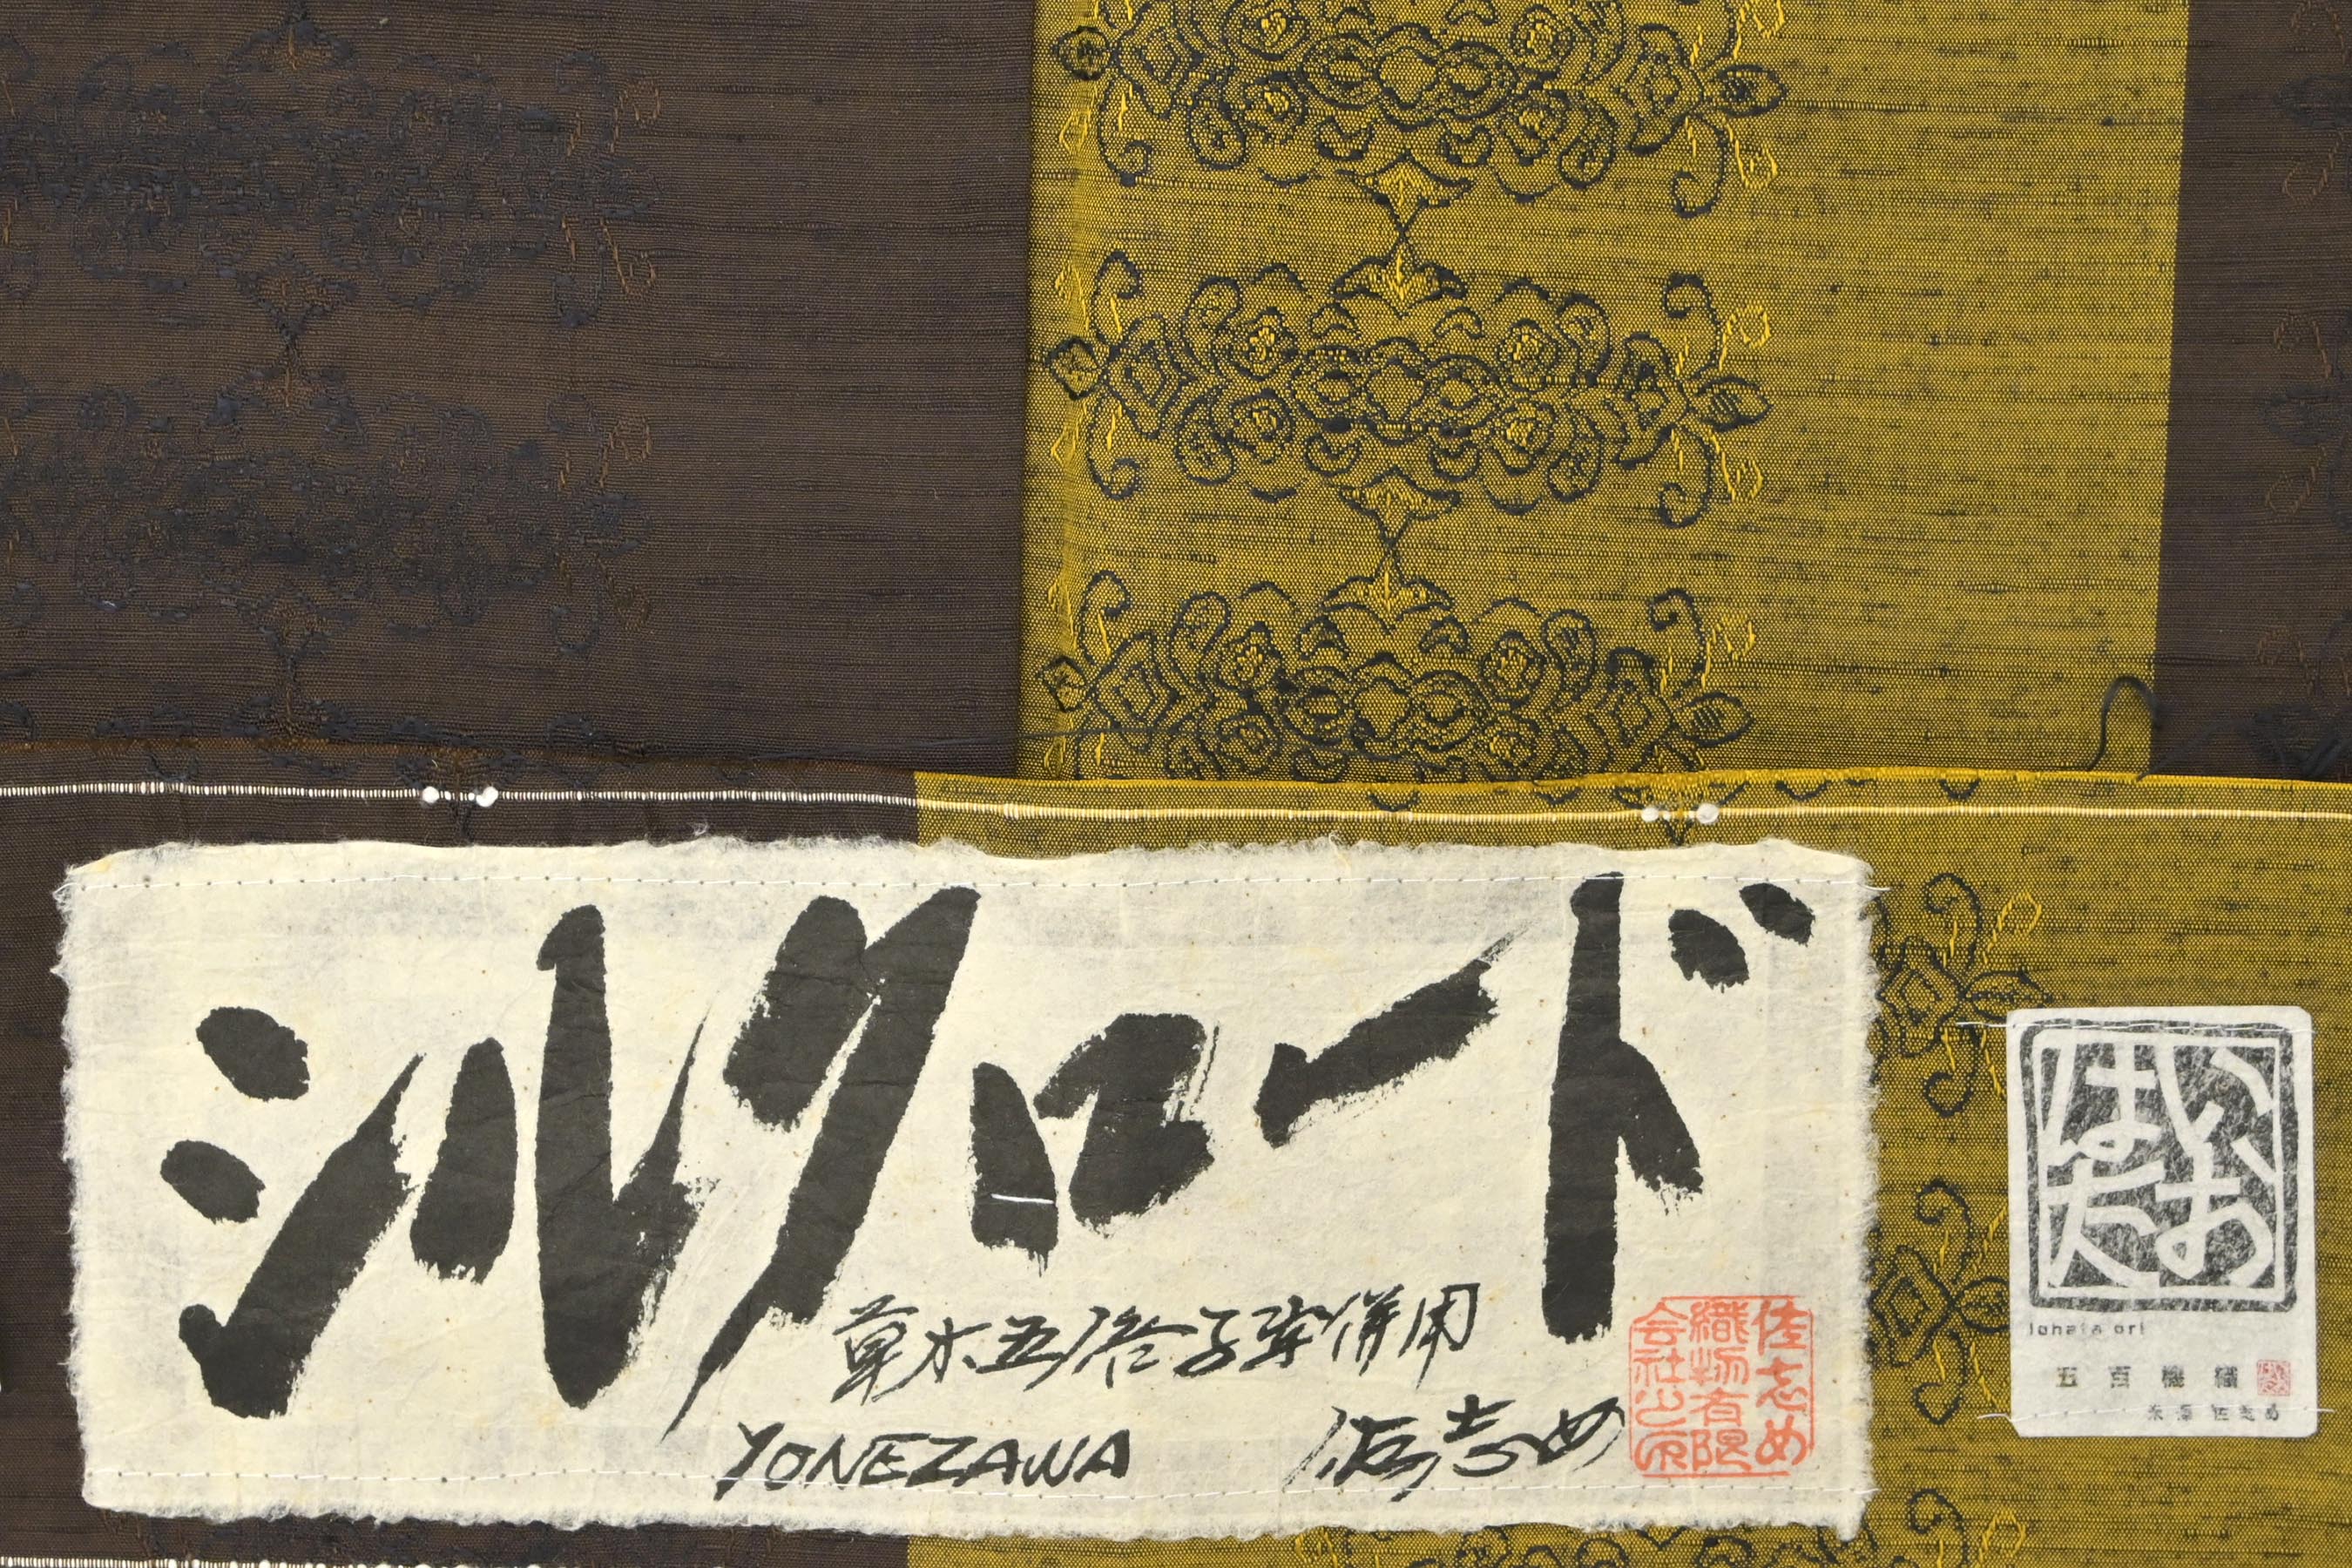 シルクロード
草木五倍子染併用
YONEZAWA 佐志め
佐志め
織物有限
会社之印
いお
はた
Iohata ori
五百機織
米澤 佐志め